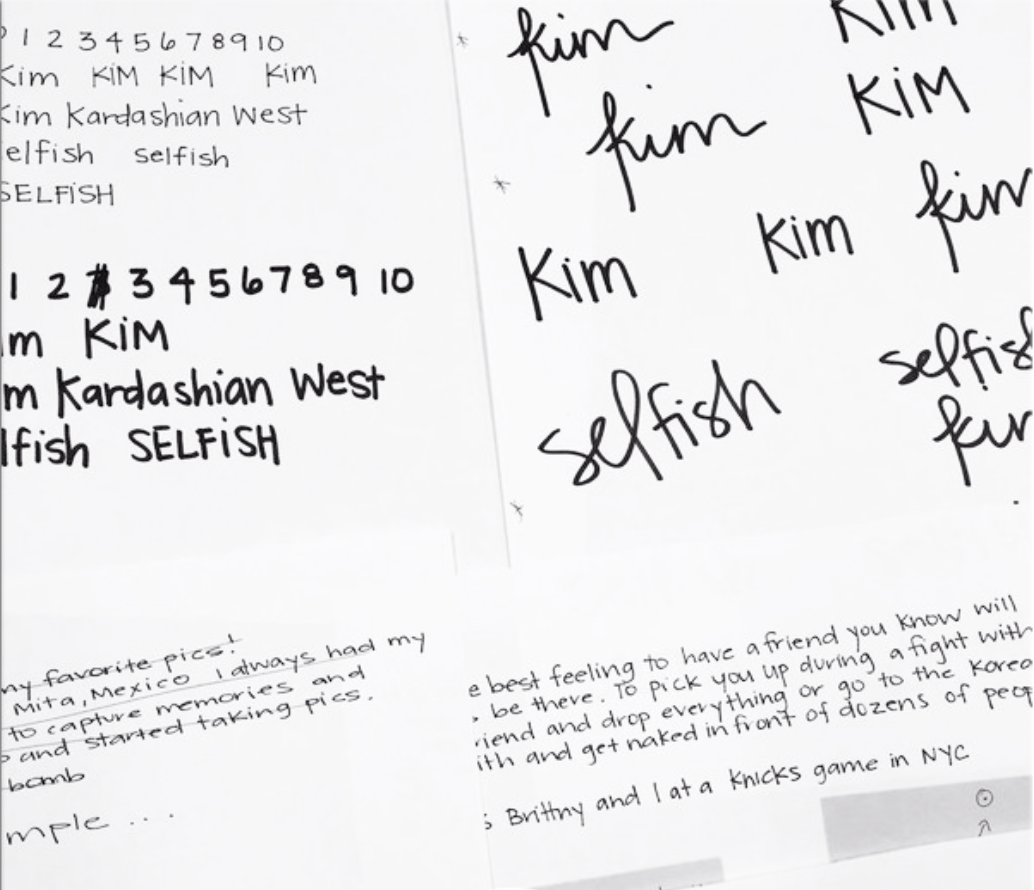 1 2 3 4 5 6 7 8 9 10
Kim KiM KiM Kim
Kim Kardashian West
elfish selfish
SELFiSH
1 2 3 4 5 6 7 8 9 10
m KiM
m Kardashian West
lfish SELFiSH
kim KiM
kim KiM
Kim Kim kim
selfish selfis
kim
my favorite pics!
Mita, Mexico I always had my
to capture memories and
and started taking pics.
bomb
mple ...
e best feeling to have a friend you know will
be there. To pick you up during a fight with
riend and drop everything or go to the Korea
ith and get naked in front of dozens of peop
s Brittny and I at a Knicks game in NYC